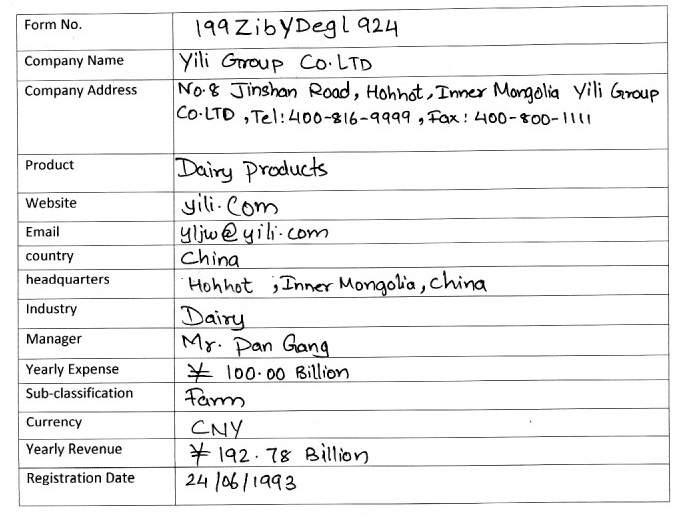 Form No. 199ZibYDegl924
Company Name Yili Group Co.LTD
Company Address No.8 Jinshan Road, Hohhot, Inner Mongolia Yili Group
Co.LTD , Tel:400-816-9999 , Fax: 400-800-1111
Product Dairy Products
Website yili.Com
Email yljw@yili.com
country China
headquarters Hohhot , Inner Mongolia, China
Industry Dairy
Manager Mr. Pan Gang
Yearly Expense ¥ 100.00 Billion
Sub-classification Farm
Currency CNY
Yearly Revenue ¥ 192.78 Billion
Registration Date 24/06/1993